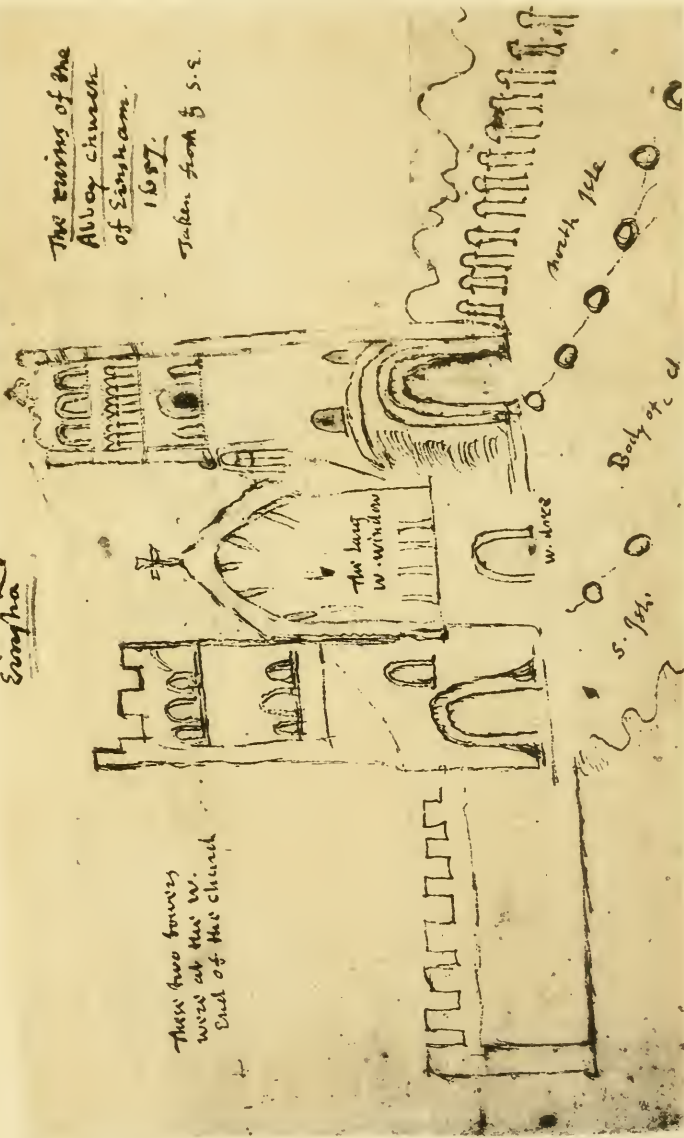 Eingha
The ruins of the
Abbey church
of Einsham.
1657.
Taken from ye S.E.
These two towers
were at the W.
End of the church
The larg
W. window
W. dore
north Isle
Body of
S. Isle